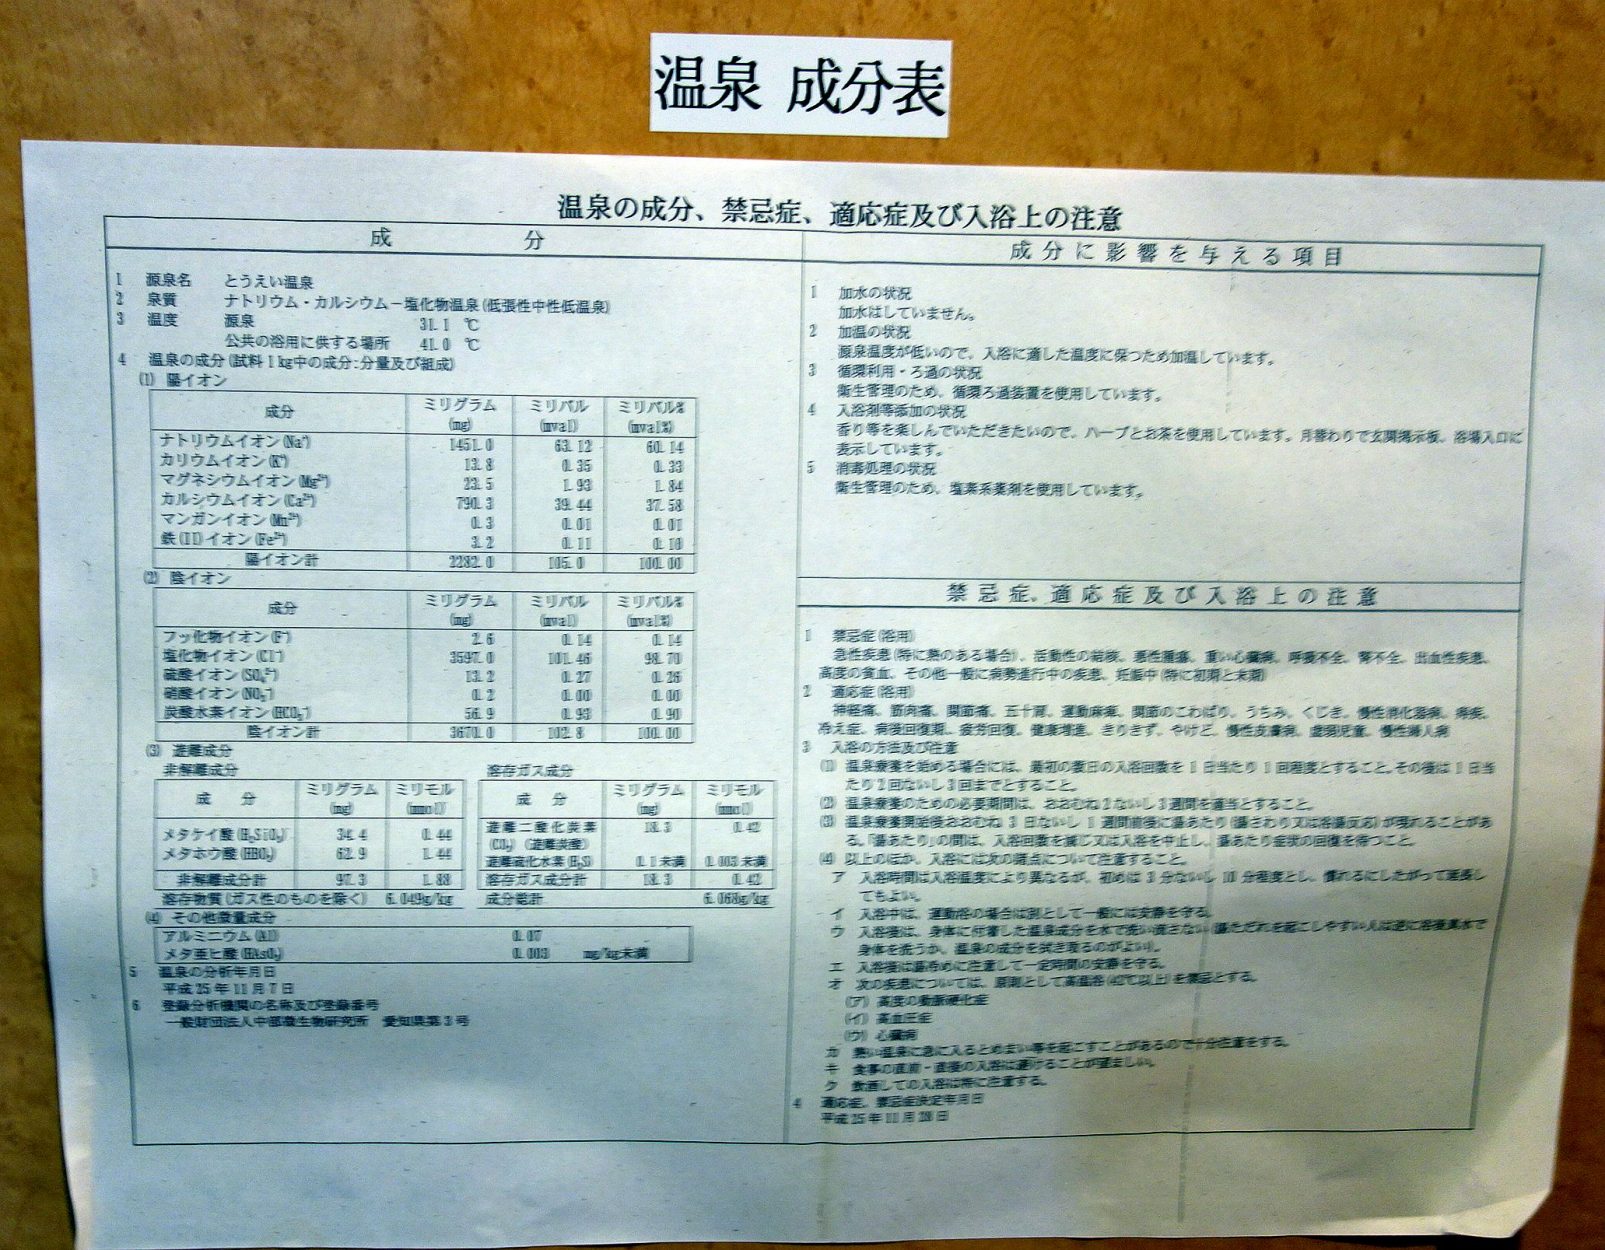 温泉 成分表
温泉の成分、禁忌症、適応症及び入浴上の注意
成 分
1 源泉名 とうえい温泉
2 泉質 ナトリウム・カルシウム－塩化物温泉(低張性中性低温泉)
3 温度 源泉 31.1 ℃
公共の浴用に供する場所 41.0 ℃
4 温泉の成分(試料1kg中の成分:分量及び組成)
(1) 陽イオン
成分 ミリグラム(mg) ミリバル(mval) ミリバル%(mval%)
ナトリウムイオン(Na⁺) 1451.0 63.12 60.14
カリウムイオン(K⁺) 13.8 0.35 0.33
マグネシウムイオン(Mg²⁺) 23.5 1.93 1.84
カルシウムイオン(Ca²⁺) 790.3 39.44 37.58
マンガンイオン(Mn²⁺) 0.3 0.01 0.01
鉄(II)イオン(Fe²⁺) 3.2 0.11 0.10
陽イオン計 2282.0 105.0 100.00
(2) 陰イオン
成分 ミリグラム(mg) ミリバル(mval) ミリバル%(mval%)
フッ化物イオン(F⁻) 2.6 0.14 0.14
塩化物イオン(Cl⁻) 3597.0 101.46 98.70
硫酸イオン(SO₄²⁻) 13.2 0.27 0.26
硝酸イオン(NO₃⁻) 0.2 0.00 0.00
炭酸水素イオン(HCO₃⁻) 56.9 0.93 0.90
陰イオン計 3670.0 102.8 100.00
(3) 遊離成分
非解離成分
成 分 ミリグラム(mg) ミリモル(mmol)
メタケイ酸(H₂SiO₃) 34.4 0.44
メタホウ酸(HBO₂) 62.9 1.44
非解離成分計 97.3 1.88
溶存物質(ガス性のものを除く) 6.049g/kg
溶存ガス成分
成 分 ミリグラム(mg) ミリモル(mmol)
遊離二酸化炭素 18.3 0.42
(CO₂)(遊離炭酸)
遊離硫化水素(H₂S) 0.1未満 0.003未満
溶存ガス成分計 18.3 0.42
成分総計 6.068g/kg
(4) その他微量成分
アルミニウム(Al) 0.07
メタ亜ヒ酸(HAsO₂) 0.003 mg/kg未満
5 温泉の分析年月日
平成25年11月7日
6 登録分析機関の名称及び登録番号
一般財団法人中部微生物研究所 愛知県第3号
成分に影響を与える項目
1 加水の状況
加水はしていません。
2 加温の状況
源泉温度が低いので、入浴に適した温度に保つため加温しています。
3 循環利用・ろ過の状況
衛生管理のため、循環ろ過装置を使用しています。
4 入浴剤等添加の状況
香り等を楽しんでいただきたいので、ハーブとお茶を使用しています。月替わりで玄関掲示板、浴場入口に
表示しています。
5 消毒処理の状況
衛生管理のため、塩素系薬剤を使用しています。
禁忌症、適応症及び入浴上の注意
1 禁忌症(浴用)
急性疾患(特に熱のある場合)、活動性の結核、悪性腫瘍、重い心臓病、呼吸不全、腎不全、出血性疾患、
高度の貧血、その他一般に病勢進行中の疾患、妊娠中(特に初期と末期)
2 適応症(浴用)
神経痛、筋肉痛、関節痛、五十肩、運動麻痺、関節のこわばり、うちみ、くじき、慢性消化器病、痔疾、
冷え症、病後回復期、疲労回復、健康増進、きりきず、やけど、慢性皮膚病、虚弱児童、慢性婦人病
3 入浴の方法及び注意
(1) 温泉療養を始める場合には、最初の数日の入浴回数を1日当たり1回程度とすること。その後は1日当
たり2回ないし3回までとすること。
(2) 温泉療養のための必要期間は、おおむね2ないし3週間を適当とすること。
(3) 温泉療養開始後おおむね3日ないし1週間前後に湯あたり(湯さわり又は浴湯反応)が現れることがあ
る。「湯あたり」の間は、入浴回数を減じ又は入浴を中止し、湯あたり症状の回復を待つこと。
(4) 以上のほか、入浴には次の諸点について注意すること。
ア 入浴時間は入浴温度により異なるが、初めは3分ないし10分程度とし、慣れるにしたがって延長し
てもよい。
イ 入浴中は、運動浴の場合は別として一般には安静を守る。
ウ 入浴後は、身体に付着した温泉成分を水で洗い流さない(湯ただれを起こしやすい人は逆に浴後真水で
身体を洗うか、温泉の成分を拭き取るのがよい)。
エ 入浴後は湯冷めに注意して一定時間の安静を守る。
オ 次の疾患については、原則として高温浴(42℃以上)を禁忌とする。
(ア) 高度の動脈硬化症
(イ) 高血圧症
(ウ) 心臓病
カ 熱い温泉に急に入るとめまい等を起こすことがあるので十分注意をする。
キ 食事の直前・直後の入浴は避けることが望ましい。
ク 飲酒しての入浴は特に注意する。
4 適応症、禁忌症決定年月日
平成25年11月28日